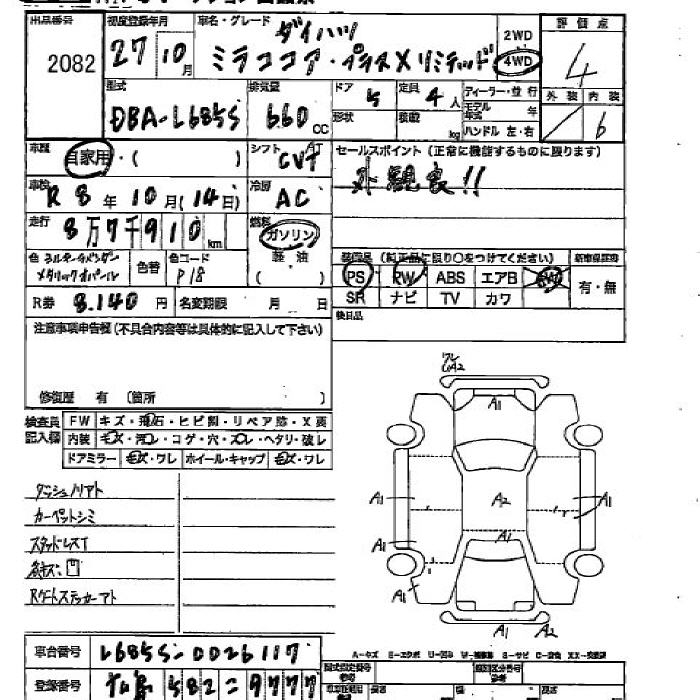 出品番号 初度登録年月 車名・グレード ダイハツ 2WD 評価点
2082 27 10月 ミラココア・プラスXリミテッド 4WD 4
型式 排気量 ドア 5 定員 4人 ディーラー・並行 外装 内装
DBA-L685S 660 CC 形状 積載 kg モデル年式 年 6
ハンドル 左・右
車歴 自家用・( ) シフト AT CVT セールスポイント (正常に機能するものに限ります)
車検 R8年10月(14日) 冷房 AC 外観良!!
走行 8万7千910km 燃料 ガソリン
(軽油)
色 メタリックオパール 色替 色コード P18
装備品 (純正品に限り○をつけてください) 新車保証書
PS PW ABS エアB AW 有・無
SR ナビ TV カワ
R券 8.140円 名変期限 月 日 後日品
注意事項申告欄(不具合内容等は具体的に記入して下さい)
修復歴 有 (箇所 )
検査員記入欄 FW キズ・飛石・ヒビ割・リペア跡・X要
内装 キズ・汚レ・コゲ・穴・スレ・ヘタリ・破レ
ドアミラー キズ・ワレ ホイール・キャップ キズ・ワレ
ダッシュノリアト
カーペットシミ
スタッドレスT
Rゲートステッカーアト
ワレ
A2
A1
A1 A2 A1
A1 A1
A1
A1 A2
A-キズ E-エクボ U-凹み W-補修跡 S-サビ C-腐食 XX-交換済
車台番号 L685S-0026117
登録番号 582 9777
型式指定番号 類別区分番号